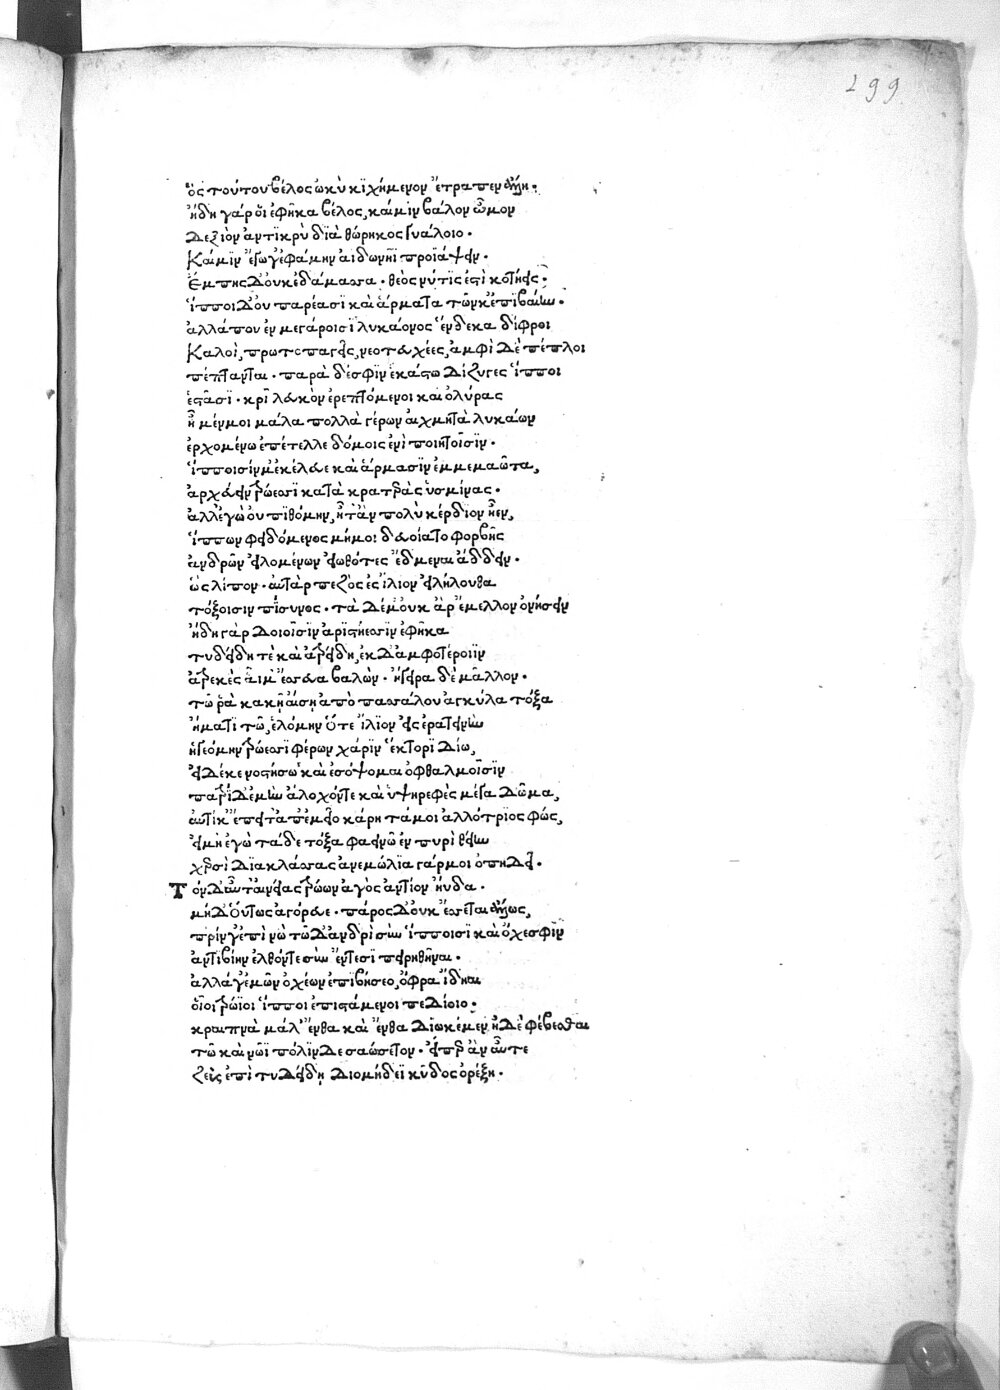 299
ὃς τούτου βέλος ὠκὺ κιχήμενον ἔτραπεν ἄλλη·
ἤδη γάρ οἱ ἐφῆκα βέλος, καί μιν βάλον ὦμον
δεξιὸν ἀντικρὺ διὰ θώρηκος γυάλοιο·
καί μιν ἔγωγ' ἐφάμην ἀϊδωνῆι προϊάψειν·
ἔμπης δ' οὐκ ἐδάμασσα· θεός νύ τις ἐστὶ κοτήεις·
ἵπποι δ' οὐ παρέασι καὶ ἅρματα τῶν κ' ἐπιβαίην·
ἀλλά που ἐν μεγάροισι λυκάονος ἕνδεκα δίφροι
καλοὶ, πρωτοπαγεῖς, νεοτευχέες, ἀμφὶ δὲ πέπλοι
πέπτανται· παρὰ δέ σφιν ἑκάστω δίζυγες ἵπποι
ἑστᾶσι· κρῖ λευκὸν ἐρεπτόμενοι καὶ ὀλύρας
ἦ μέν μοι μάλα πολλὰ γέρων αἰχμητὰ λυκάων
ἐρχομένω ἐπέτελλε δόμοις ἐνὶ ποιητοῖσιν·
ἵπποισίν μ' ἐκέλευε καὶ ἅρμασιν ἐμμεμαῶτα,
ἀρχεύειν τρώεσσι κατὰ κρατερὰς ὑσμίνας·
ἀλλ' ἐγὼ οὐ πιθόμην, ἦ τ' ἂν πολὺ κέρδιον ἦεν,
ἵππων φειδόμενος μή μοι δευοίατο φορβῆς
ἀνδρῶν εἰλομένων εἰωθότες ἔδμεναι ἄδδειν·
ὣς λίπον· αὐτὰρ πεζὸς ἐς ἴλιον εἰλήλουθα
τόξοισιν πίσυνος· τὰ δέ μ' οὐκ ἂρ ἔμελλον ὀνήσειν
ἤδη γὰρ δοιοῖσιν ἀριστήεσσιν ἐφῆκα
τυδείδη τὲ καὶ ἀτρείδη, ἐκ δ' ἀμφοτέροιϊν
ἀτρεκὲς αἷμ' ἔσσευα βαλὼν· ἤγειρα δὲ μᾶλλον·
τῶ ῥα κακῆ αἴση ἀπὸ πασσάλου ἀγκύλα τόξα
ἤματι τῶ, ἑλόμην ὅτε ἴλιον εἰς ἐρατεινὴν
ἡγεόμην τρώεσσι φέρων χάριν ἕκτορι δίω,
εἰ δέ κε νοστήσω καὶ ἐσόψομαι ὀφθαλμοῖσιν
πατρίδ' ἐμὴν ἄλοχόν τε καὶ ὑψηρεφὲς μέγα δῶμα,
αὐτίκ' ἔπειτ' ἀπ' ἐμεῖο κάρη τάμοι ἀλλότριος φώς,
εἰ μὴ ἐγὼ τάδε τόξα φαεινῶ ἐν πυρὶ θείην
χερσὶ διακλάσσας ἀνεμώλια γάρ μοι ὀπηδεῖ·
Τὸν δ' αὖτ' αἰνείας τρώων ἀγὸς ἀντίον ηὔδα·
μὴ δ' οὕτως ἀγόρευε· πάρος δ' οὐκ ἔσσεται ἄλλως,
πρίν γ' ἐπὶ νὼ τῶδ' ἀνδρὶ σὺν ἵπποισι καὶ ὄχεσφιν
ἀντιβίην ἐλθόντε σὺν ἔντεσι πειρηθῆναι·
ἀλλά γ' ἐμῶν ὀχέων ἐπιβήσεο, ὄφρα ἴδηαι
οἷοι τρώϊοι ἵπποι ἐπιστάμενοι πεδίοιο·
κραιπνὰ μάλ' ἔνθα καὶ ἔνθα διωκέμεν ἠδὲ φέβεσθαι
τῶ καὶ νῶϊ πόλιν δὲ σαώσετον· εἴπερ ἂν αὖτε
ζεὺς ἐπὶ τυδείδη διομήδεϊ κῦδος ὀρέξη·